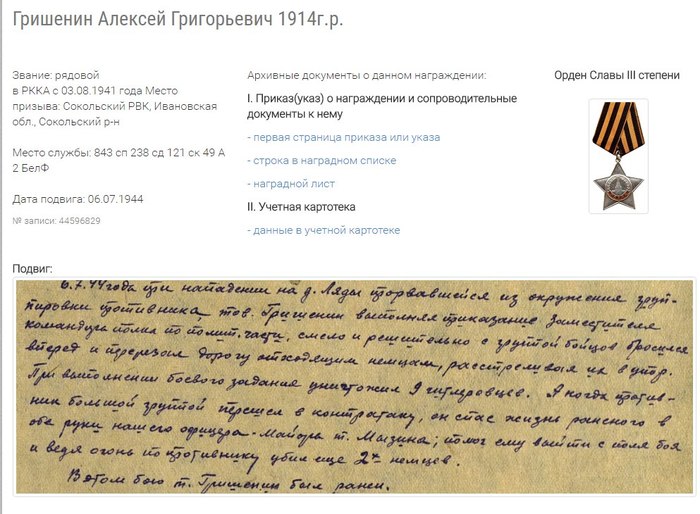 Гришенин Алексей Григорьевич 1914г.р.
Звание: рядовой
в РККА с 03.08.1941 года Место
призыва: Сокольский РВК, Ивановская
обл., Сокольский р-н
Место службы: 843 сп 238 сд 121 ск 49 А
2 БелФ
Дата подвига: 06.07.1944
№ записи: 44596829
Архивные документы о данном награждении:
I. Приказ(указ) о награждении и сопроводительные
документы к нему
- первая страница приказа или указа
- строка в наградном списке
- наградной лист
II. Учетная картотека
- данные в учетной картотеке
Орден Славы III степени
Подвиг:
6.7.44 года при нападении на д. Ляды прорвавшейся из окружения груп-
пировки противника тов. Гришенин выполняя приказание заместителя
командира полка по полит. части, смело и решительно с группой бойцов бросился
вперед и перерезал дорогу отходящим немцам, расстреливая их в упор.
При выполнении боевого задания уничтожил 9 гитлеровцев. А когда против-
ник большой группой перешел в контратаку, он спас жизнь раненого в
обе руки нашего офицера - Майора т. Мызина; помог ему выйти с поля боя
и ведя огонь по противнику убил еще 2х немцев.
В этом бою т. Гришенин был ранен.